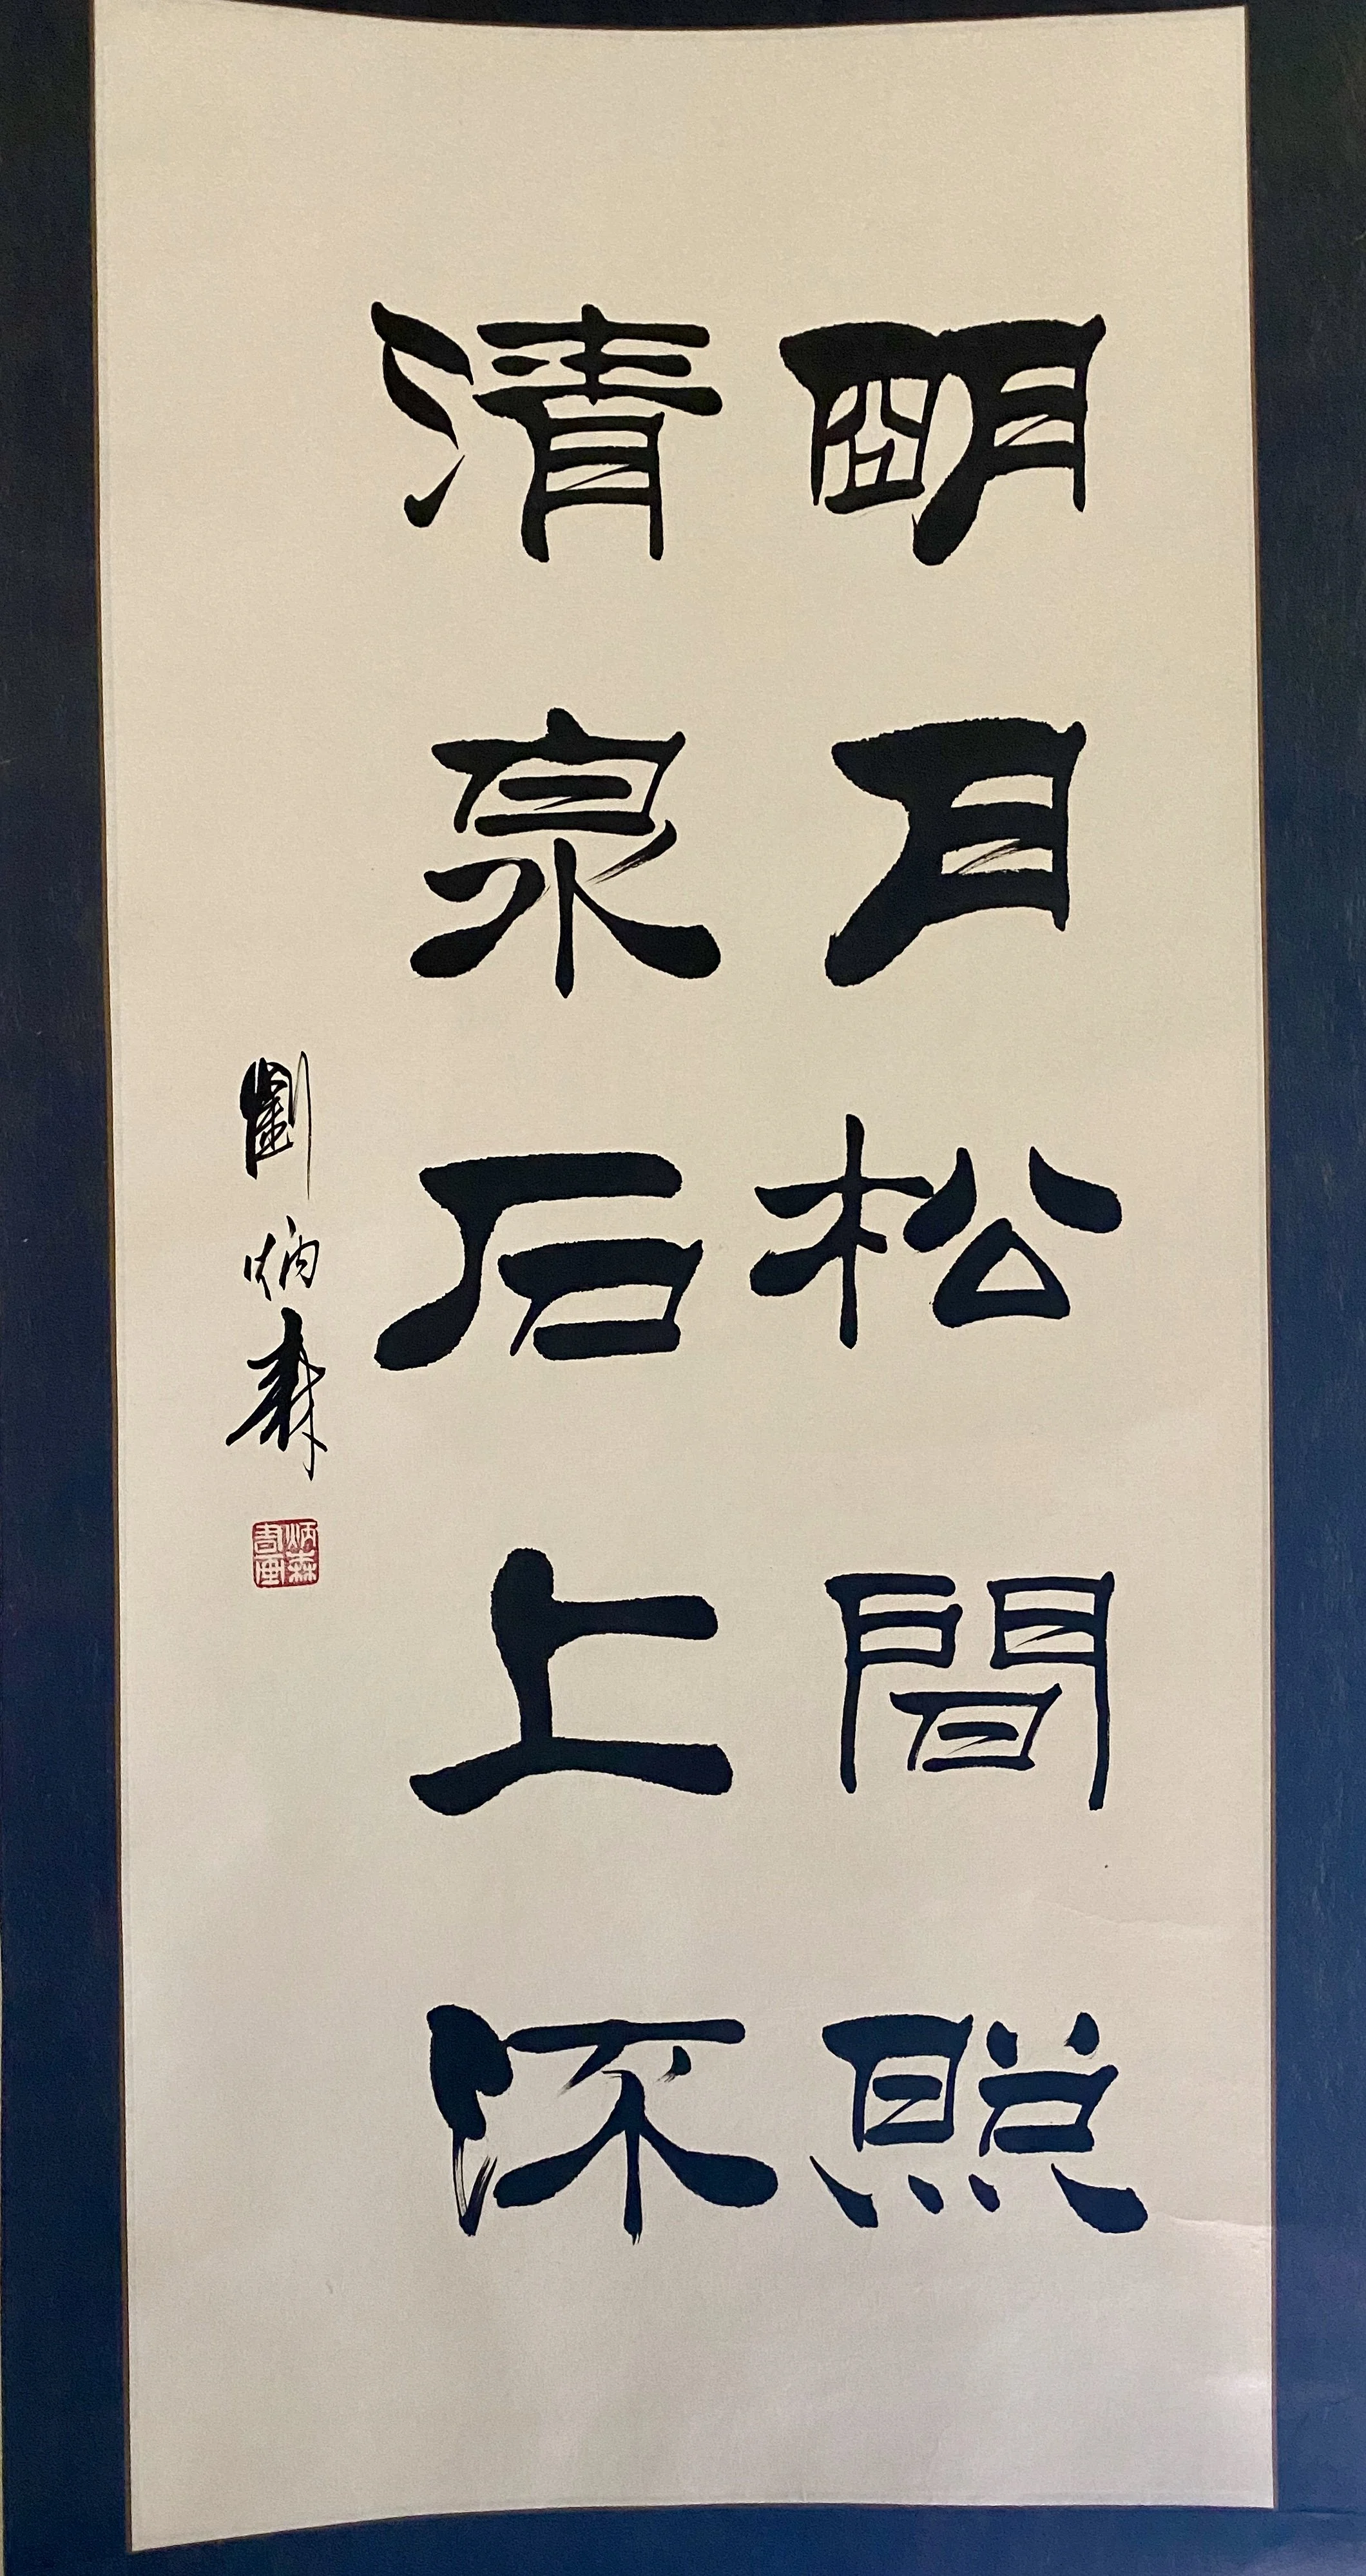 朙月松間照
清泉石上㳅
劉炳森
炳森
書画